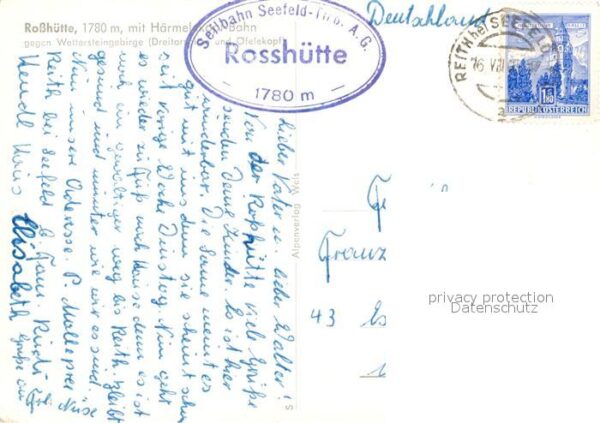 Roßhütte, 1780 m, mit Härmele Bahn
gegen Wettersteingebirge (Dreitor und Öfelekopf)
Seilbahn Seefeld-Tirol A.G.
Rosshütte
1780 m
Deutschland
REITH bei SEEFELD
16. VIII.
1.80
REPUBLIK ÖSTERREICH
Lieber Vater u. liebe Walter!
Von der Roßhütte viele Grüße
senden Deine Kinder. Es ist hier
wunderbar. Die Sonne meint es
gut mit uns denn sie scheint schon
seit vorige Woche Dienstag. Nun geht
es wieder zu Fuß nach Hause denn es ist
noch ein gewaltiger weg bis Reith. Bleibt
gesund und munter wie wir es sind.
Nun unsere Adresse. P.
Reith bei Seefeld Tirol
Elisabeth Grüße
Alpenverlag
Franz
43 Es
privacy protection
Datenschutz